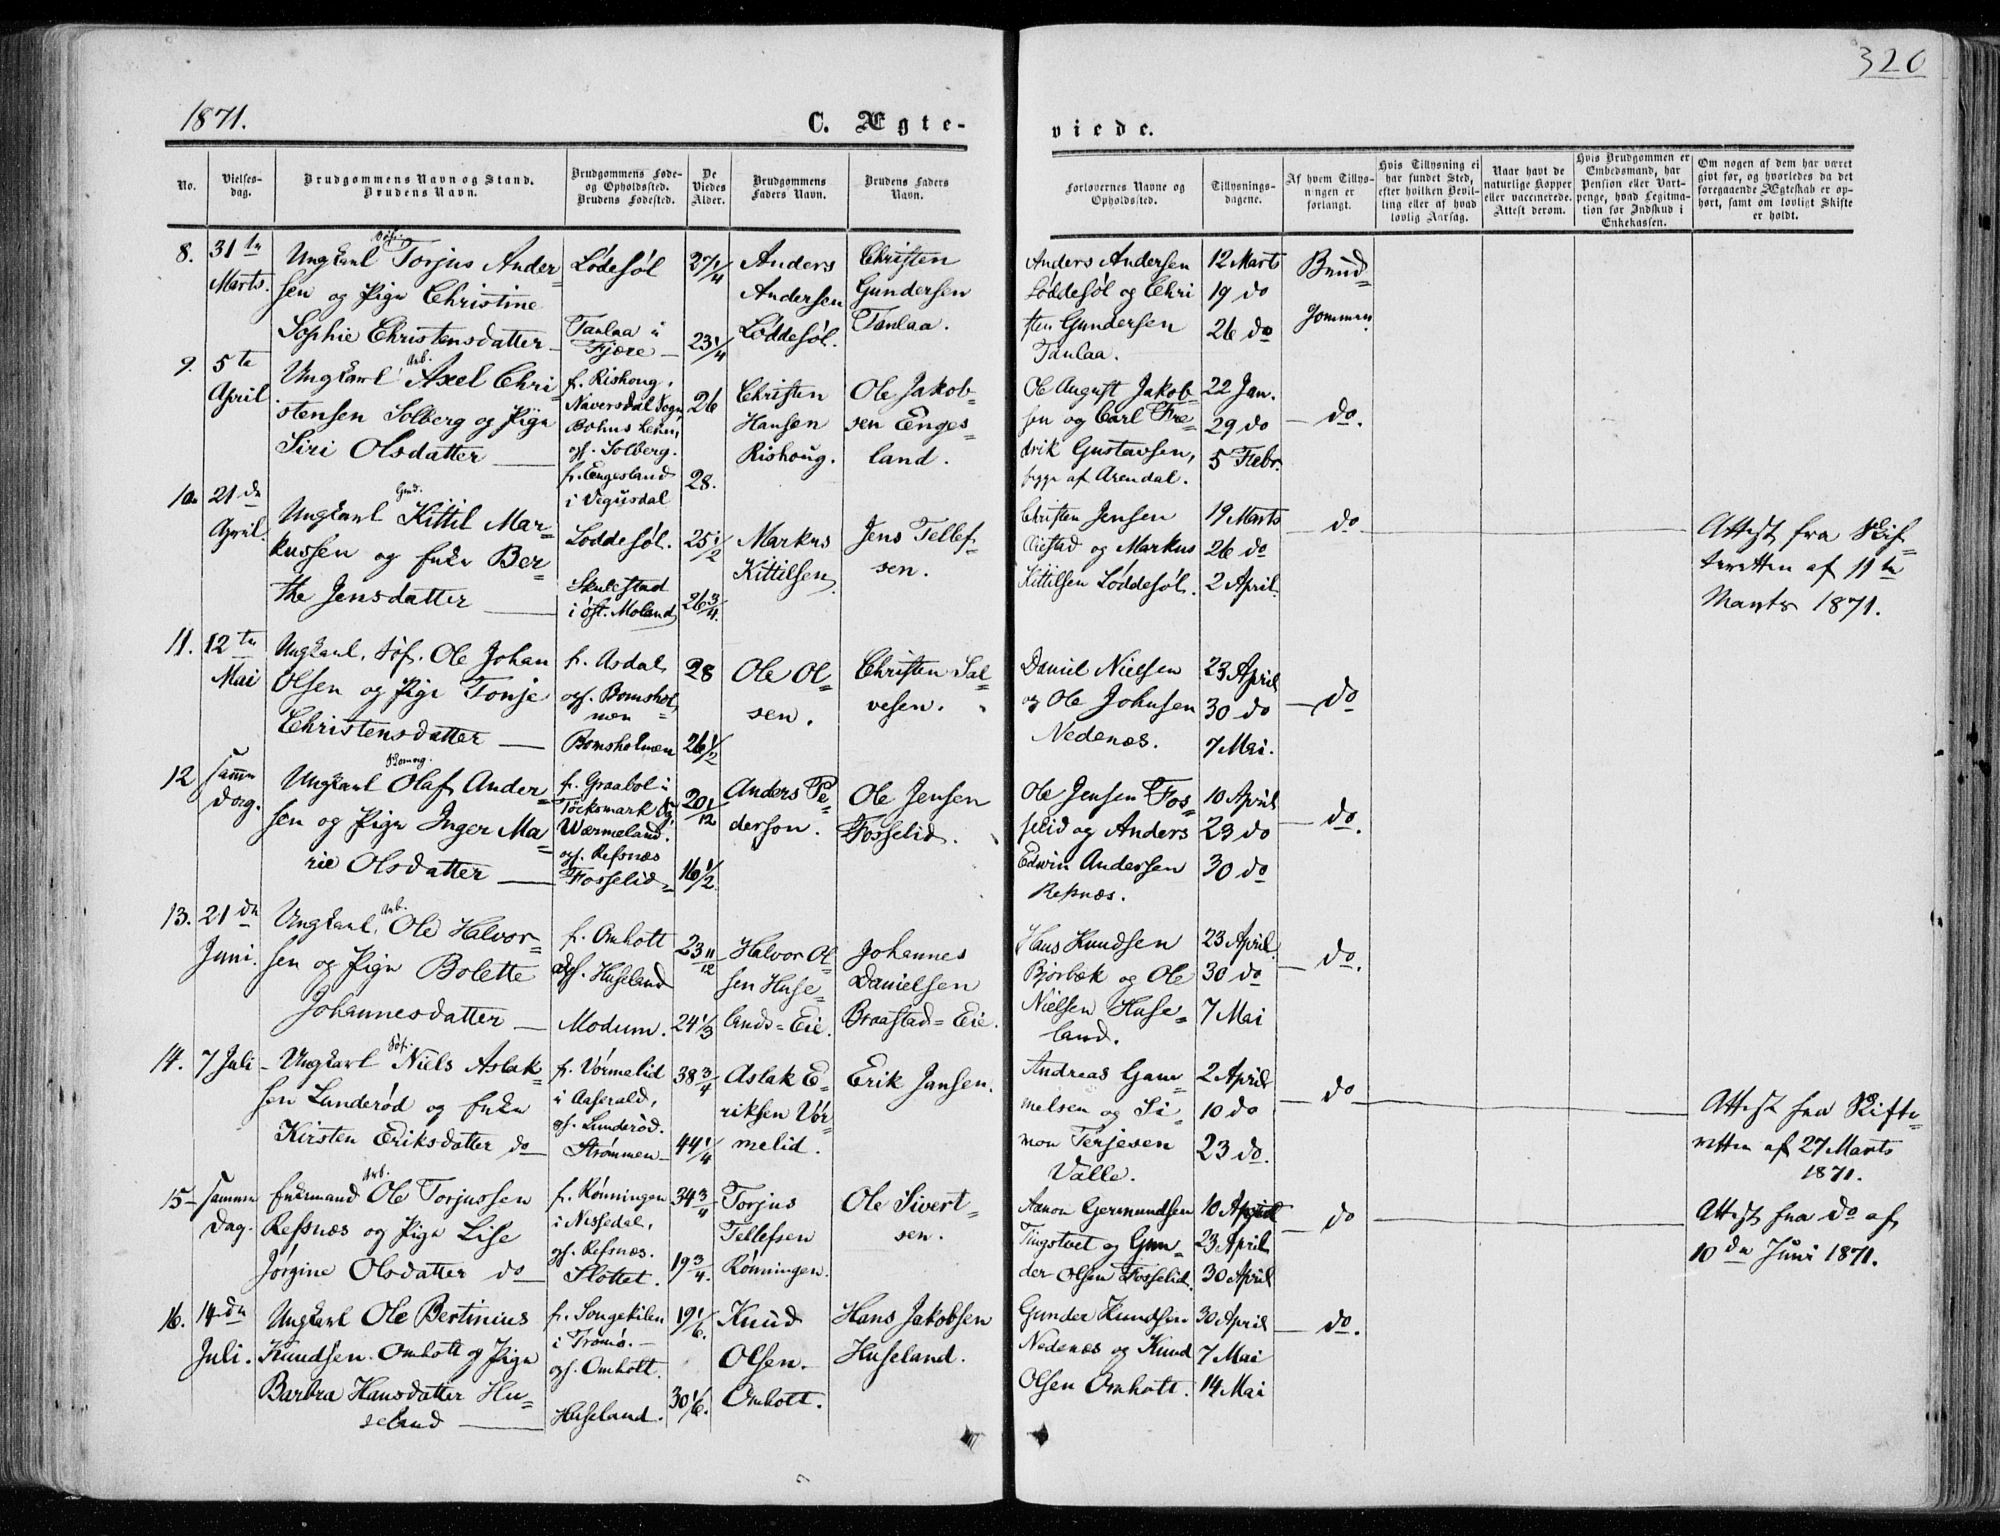 320
1871.
C. Ægte-
viede.
No.
Vielses-
dag.
Brudgommens Navn og Stand.
Brudens Navn.
Brudgommens Føde-
og Opholdssted.
Brudens Fødested.
De
Viedes
Alder.
Brudgommens
Faders Navn.
Brudens Faders
Navn.
Forlovernes Navne og
Opholdssted.
Tillysnings-
dagene.
Af hvem Tillys-
ningen er
forlangt.
Hvis Tillysning ei
har fundet Sted,
efter hvilken Bevil-
ling eller af hvad
lovlig Aarsag.
Naar havt de
naturlige Kopper
eller vaccinerede.
Attest derom.
Hvis Brudgommen er
Embedsmand, har
Pension eller Vart-
penge, hvad Legitima-
tion for Indskud i
Enkekassen.
Om nogen af dem har været
gift før, og hvorledes da det
foregaaende Ægteskab er op-
hørt, samt om lovligt Skifte
er holdt.
8.
31te
Marts.
Søf.
Ungkarl Torjus Ander-
sen og Pige Christine
Sophie Christensdatter
Lødesøl
Tanlaa i
Fjære
27 1/4
23 1/4
Anders
Andersen
Løddesøl.
Christen
Gundersen
Tanlaa.
Anders Andersen
Løddesøl og Chri
sten Gundersen
Tanlaa.
12 Marts
19 do
26 do
Brud-
gommen
9.
5te
April
Arb.
Ungkarl Axel Chri-
stensen Solberg og Pige
Siri Olsdatter
f. Rishoug,
Naversdal Sogn
Bohus Lehn,
opf. Solberg.
f. Engesland
i Vegusdal
26
28.
Christen
Hansen
Rishoug.
Ole Jakob-
sen Enges-
land.
Ole August Jakob-
sen og Carl Fre-
drik Gustavsen,
begge af Arendal.
22 Jan.
29 do
5 Febr.
do.
10.
21de
April.
Gmd.
Ungkarl Kittil Mar-
kussen og Enke Ber-
the Jensdatter
Løddesøl.
Skulestad
i øst. Moland
25 1/2
26 3/4
Markus
Kittilsen
Jens Tellef-
sen.
Christen Jensen
og Markus
Kittilsen Løddesøl.
19 Marts
26 do
2 April.
do
Attest fra Skif-
teretten af 11te
Marts 1871.
11.
12te
Mai
Ungkarl, Søf. Ole Johan
Olsen og Pige Tonje
Christensdatter
f. Asdal
opf. Bomshol-
men
Bomsholmen
28
26 1/2
Ole Ol-
sen.
Christen Sal-
vesen.
Daniel Nielsen
og Ole Johnsen
Nedenæs.
23 April
30 do
7 Mai.
do
12
samme
Dag.
Ungkarl Olaf Ander-
sen og Pige Inger Ma-
rie Olsdatter
f. Graabol i
Töcksmark Sg,
Wærmeland.
opf. Refsnæs
Fosselid
20 1/12
16 1/2
Anders Pe-
derson.
Ole Jensen
Fosselid.
Ole Jensen Fos-
selid og Anders
Edwin Andersen
Refsnæs.
10 April
23 do
30 do
do.
13.
21de
Juni.
Arb.
Ungkarl, Ole Halvor-
sen og Pige Bolette
Johannesdatter
f. Omholt
opf. Huseland
Modum.
23 11/12
24 1/3
Halvor Ol-
sen Huse-
lands=Eie
Johannes
Danielsen
Braastad=Eie.
Hans Knudsen
Bjorbæk og Ole
Nielsen Huse-
land.
23 April.
30 do
7 Mai
do.
14.
7 Juli
Søf.
Ungkarl Niels Aslak-
sen Lunderød og Enke
Kirsten Eriksdatter do
f. Vørmelid
i Aaserald,
opf. Lunderød.
Strømmen
38 3/4
44 1/4
Aslak E-
riksen Vør-
melid.
Erik Jansen.
Andreas Gam-
melsen og Si-
mon Terjesen
Valle.
2 April
10 do
23 do.
do
Attest fra Skifte-
retten af 27 Marts
1871.
15
samme
Dag.
Arb.
Enkemand Ole Torjussen
Refsnæs og Pige Lise
Jørgine Olsdatter do
f. Rønningen
i Nissedal,
opf. Refsnæs.
Slottet.
34 3/4
19 3/4.
Torjus
Tellefsen
Rønningen.
Ole Sivert-
sen.
Aanon Germundsen
Tingstvet og Gun-
der Olsen Fosselid.
10 April
23 April
30 April
do
Attest fra do af
10de Juni 1871.
16.
14de
Juli.
Ungkarl Ole Bertinius
Knudsen Omholt og Pige
Barbra Hansdatter Hu-
seland
f. Songekilen
i Tromø.
opf. Omholt.
Huseland.
19 1/6.
30 1/6.
Knud
Olsen
Omholt.
Hans Jakobsen
Huseland.
Gunder Knudsen
Nedenæs og Knud
Olsen Omholt.
30 April
7 Mai
14 Mai
do.